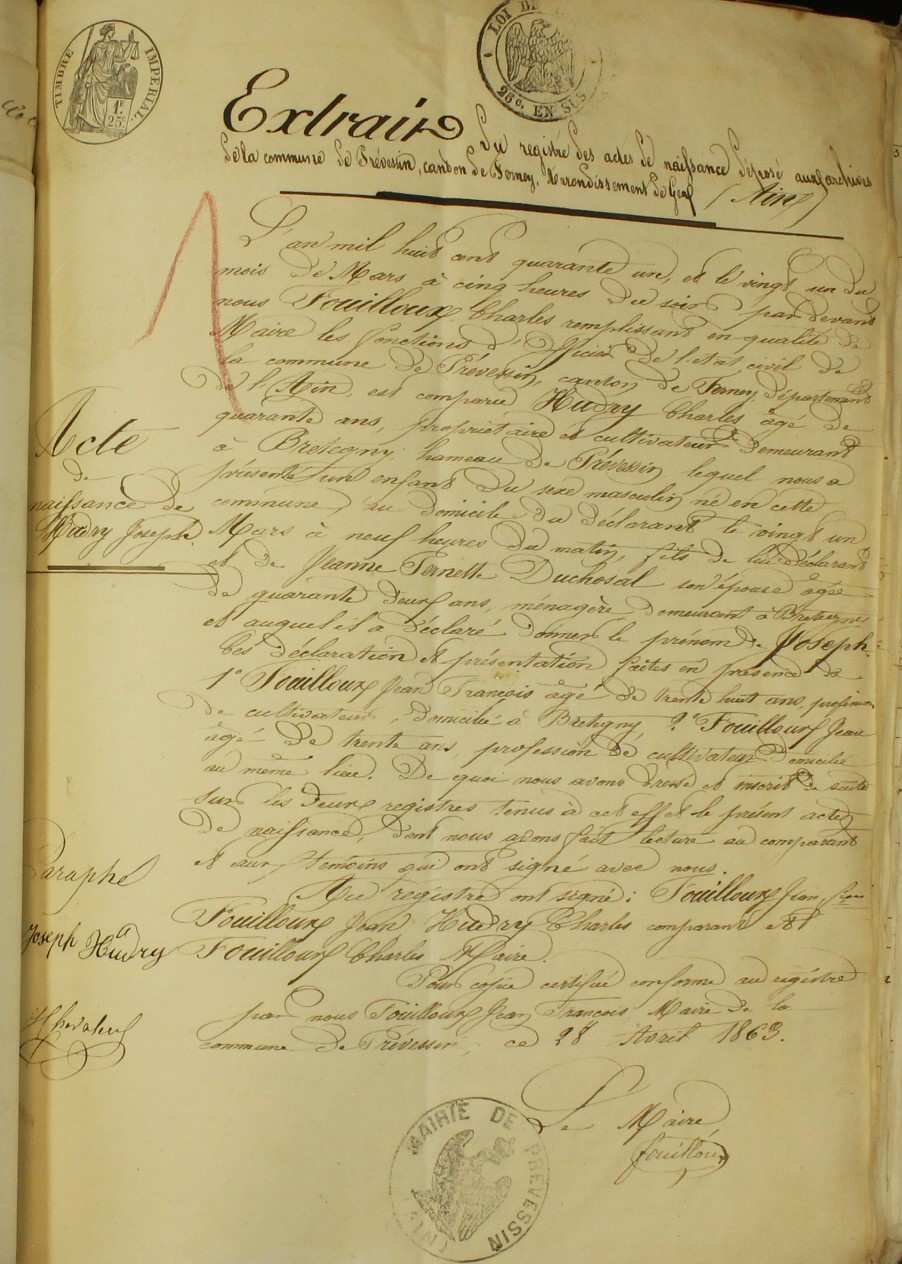 TIMBRE IMPERIAL
1F.
25c.
LOI DE
26c. EN SUS
Extrait du registre des actes de naissance déposé aux archives
de la commune de Prévessin, canton de Ferney, arrondissement de Gex (Ain)
L'an mil huit cent quarante un, et le vingt un du
mois de Mars à cinq heures du soir, par devant
nous Fouilloux Charles remplissant en qualité de
Maire les fonctions d'officier de l'état civil de
la commune de Prévessin, canton de Ferney département
de l'Ain, est comparu Hudry Charles âgé de
quarante ans, propriétaire et cultivateur demeurant
à Bretegny hameau de Prévessin, lequel nous a
présenté un enfant du sexe masculin, né en cette
commune, au domicile du déclarant le vingt un
Mars à neuf heures du matin, fils de lui déclarant
et de Jeanne Pernette Duchosal son épouse âgée
de quarante deux ans, ménagère demeurant à
et auquel il a déclaré donner le prénom de Joseph.
Ces déclaration et présentation faites en présence de
1° Fouilloux Jean François âgé de trente huit ans, profession
de cultivateur, domicilié à Bretigny, 2° Fouilloux Jean
âgé de trente ans, profession de cultivateur domicilié
au même lieu. De quoi nous avons dressé et inscrit de suite
sur les deux registres tenus à cet effet le présent acte
de naissance, dont nous avons fait lecture au comparant
et aux témoins qui ont signé avec nous.
Au registre ont signé: Fouilloux Jean fçois
Fouilloux Jean Hudry Charles comparant et
Fouilloux Charles Maire.
Pour copie certifiée conforme au registre
par nous Fouilloux Jean François Maire de la
commune de Prévessin, ce 28 Avril 1863.
Le Maire
Fouilloux
MAIRIE DE PREVESSIN
(AIN)
Acte
de
naissance de
Hudry Joseph.
Paraphé
Joseph Hudry